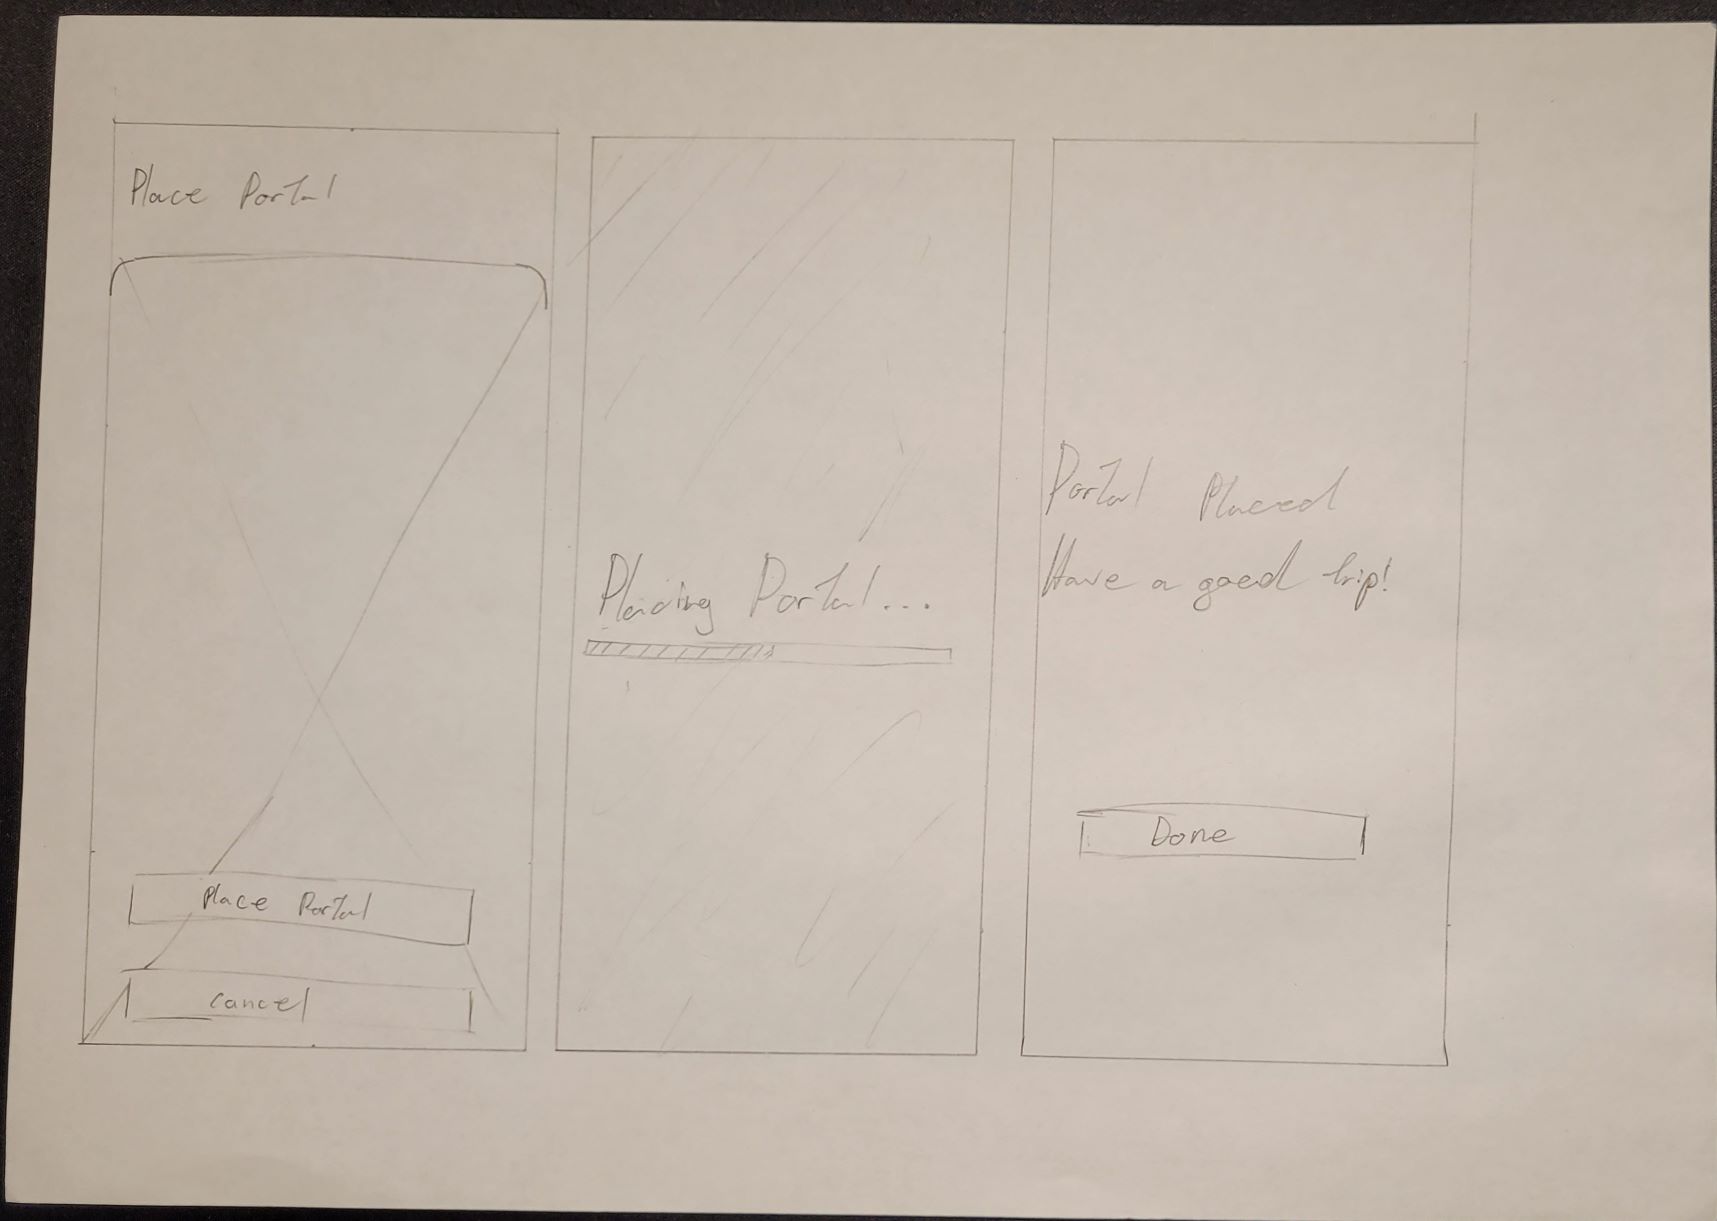 Place Portal
Place Portal
Cancel
Placing Portal...
Portal Placed
Have a good trip!
Done